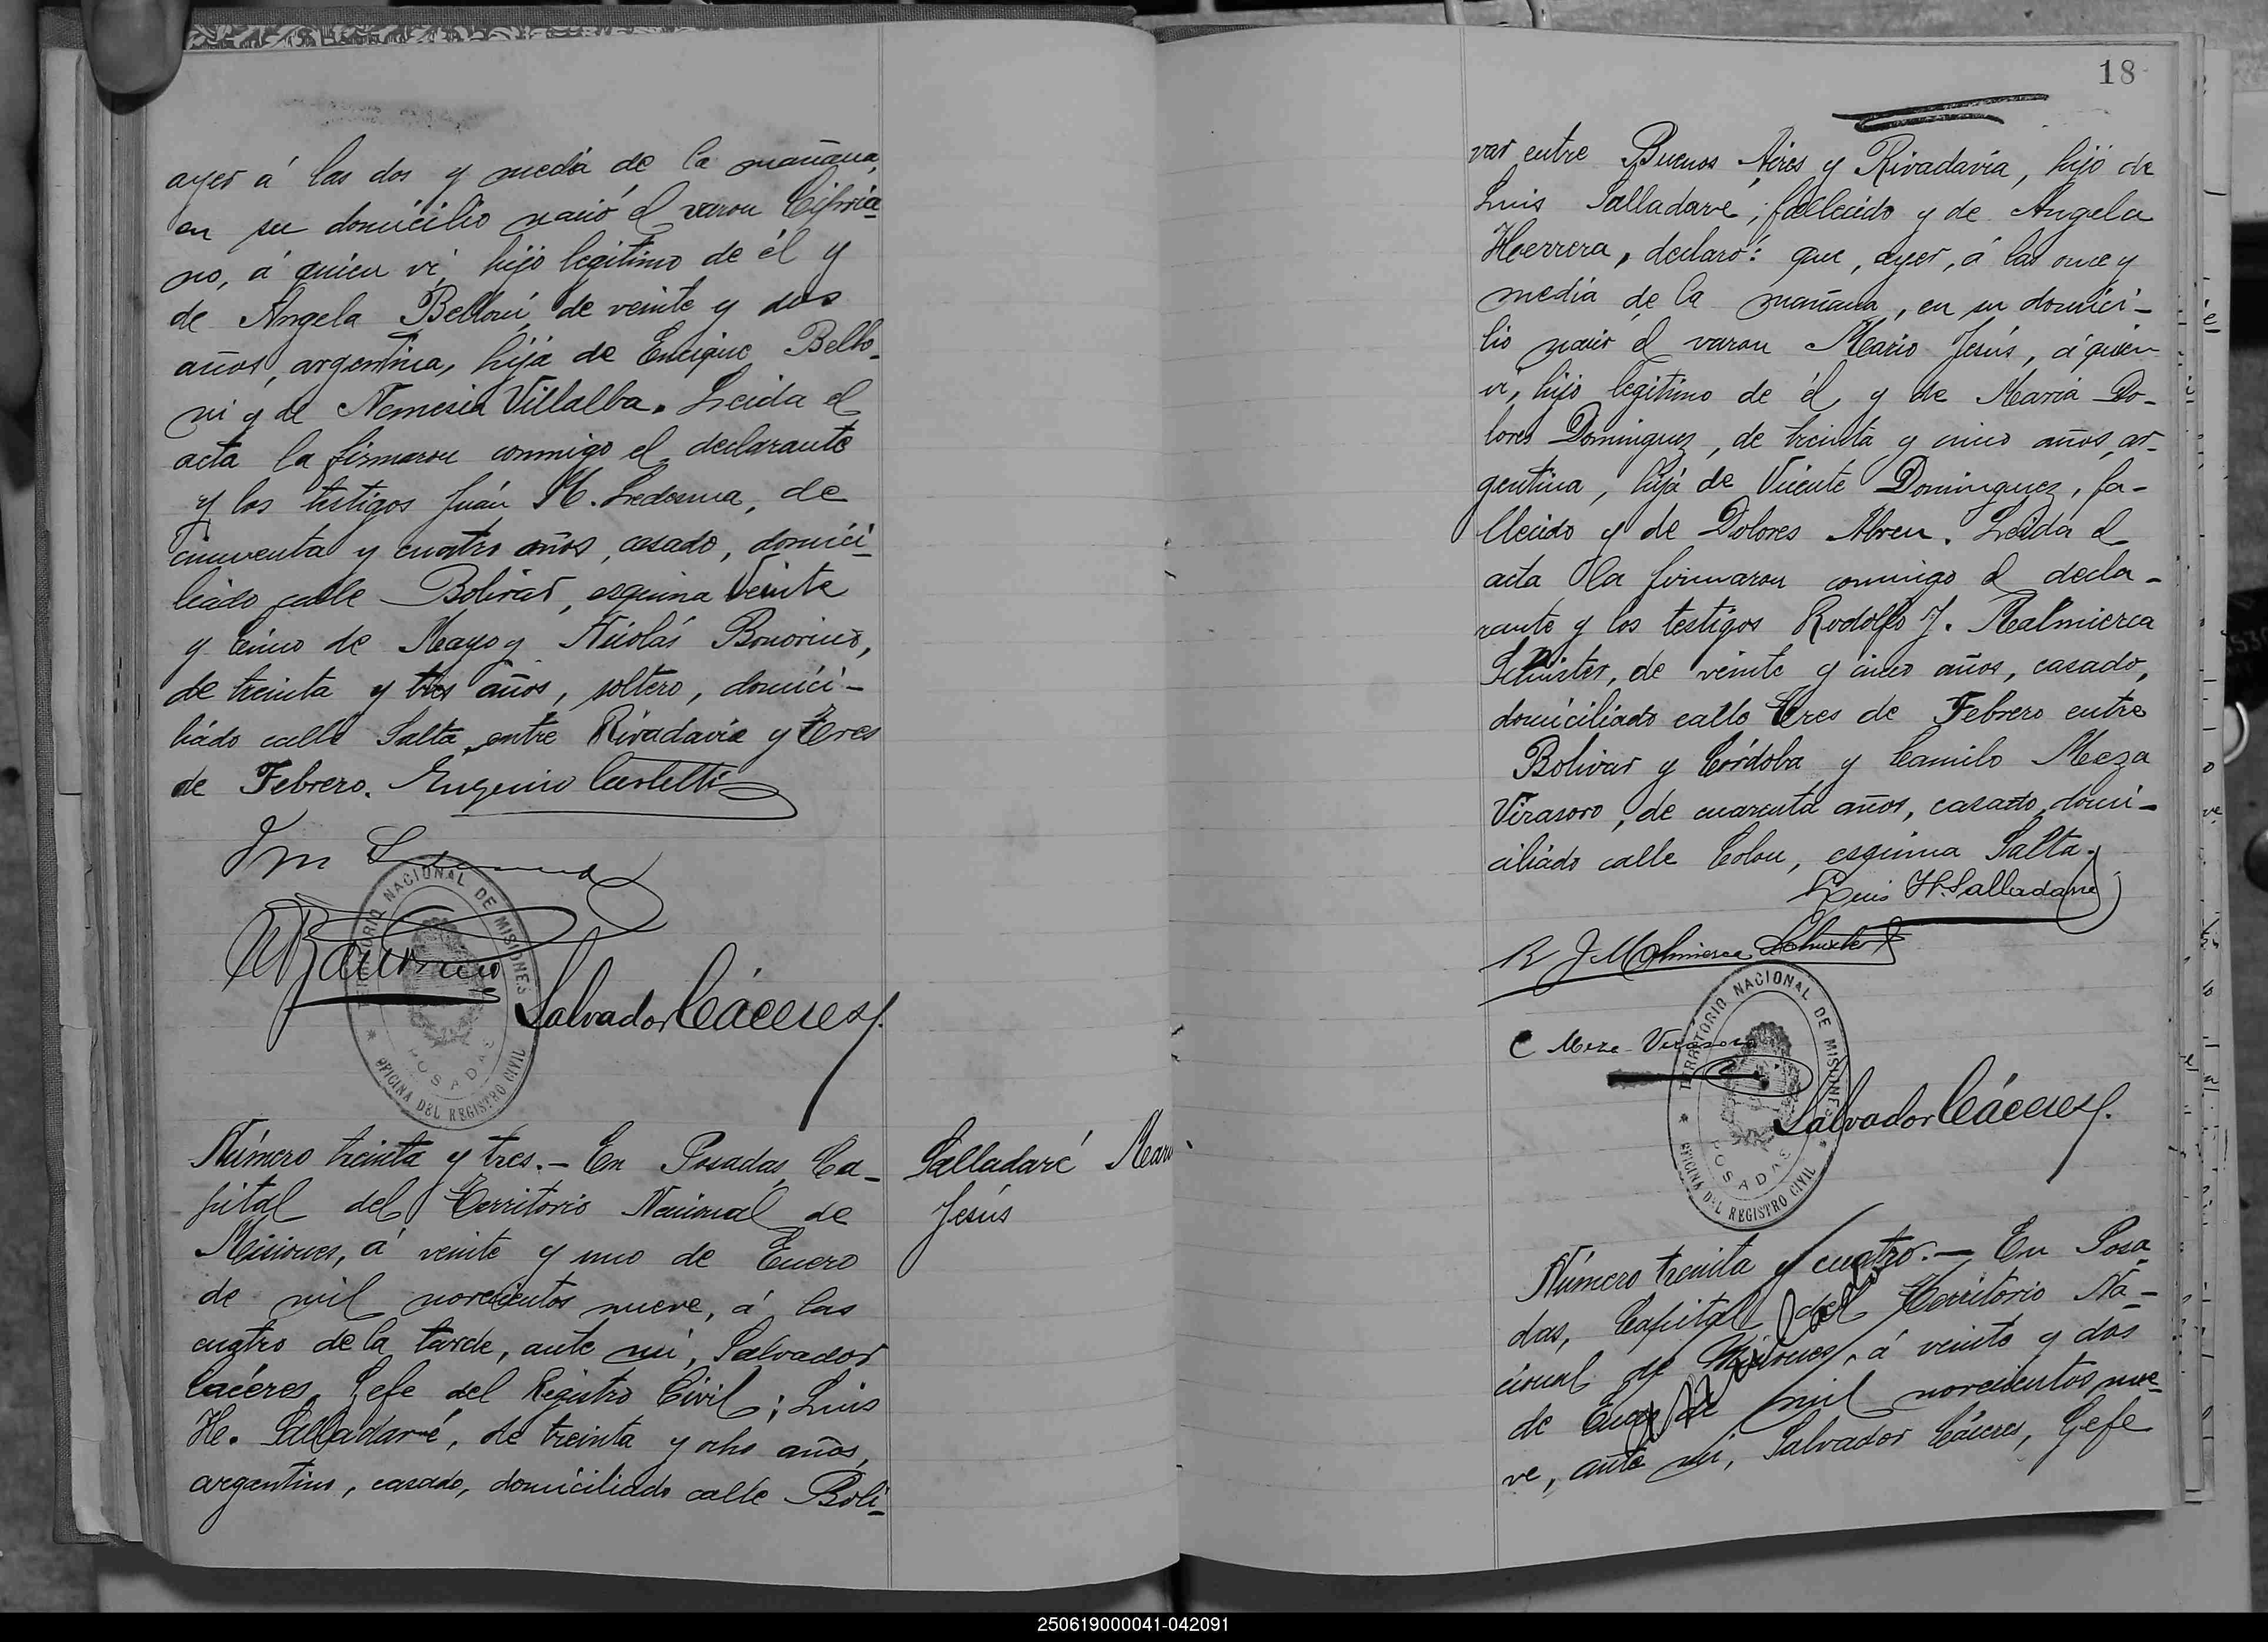 ayer á las dos y media de la mañana,
en su domicilio nació el varon Cipria-
no, á quien vi, hijo legítimo de él y
de Angela Belloni, de veinte y dos
años, argentina, hija de Enrique Bello-
ni y de Nemesia Villalba. Leida el
acta la firmaron conmigo el declarante
y los testigos Juán M. Ledesma, de
cincuenta y cuatro años, casado, domici-
liado calle Bolivar, esquina Veinte
y Cinco de Mayo y Nicolás Bonorino,
de treinta y tres años, soltero, domici-
liado calle Salta, entre Rivadavia y Tres
de Febrero. Eugenio Carletti
N Bonorino
Salvador Cáceres
TERRITORIO NACIONAL DE MISIONES
POSADAS
OFICINA DEL REGISTRO CIVIL
Número treinta y tres.- En Posadas, Ca-
pital del Territorio Nacional de
Misiones, á veinte y uno de Enero
de mil novecientos nueve, á las
cuatro de la tarde, ante mi, Salvador
Cacéres, Gefe del Registro Civil; Luis
H. Salladaré, de treinta y ocho años,
argentino, casado, domiciliado calle Boli-
Salladaré Mario
Jesús
18
var entre Buenos Aires y Rivadavia, hijo de
Luis Salladaré, fallecido y de Angela
Herrera, declaró: que, ayer, á las once y
media de la mañana, en su domici-
lio nació el varon Mario Jesús, á quien
vi, hijo legítimo de él y de Maria Do-
lores Dominguez, de treinta y cinco años, ar-
gentina, hija de Vicente Dominguez, fa-
llecido y de Dolores Abreu. Leida el
acta la firmaron conmigo el decla-
rante y los testigos Rodolfo J. Malmierca
Schuster, de veinte y cinco años, casado,
domiciliado calle Tres de Febrero entre
Bolivar y Córdoba y Camilo Meza
Virasoro, de cuarenta años, casado, domi-
ciliado calle Colon, esquina Salta.
Luis H. Salladaré
R J Malmierca Schuster
C Meza Virasoro
Salvador Cáceres
TERRITORIO NACIONAL DE MISIONES
POSADAS
OFICINA DEL REGISTRO CIVIL
Número treinta y cuatro.- En Posa
das, Capital del Territorio Na-
cional de Misiones, á veinte y dos
de Enero de mil novecientos nue-
ve, ante mi, Salvador Cáceres, Gefe
250619000041-042091